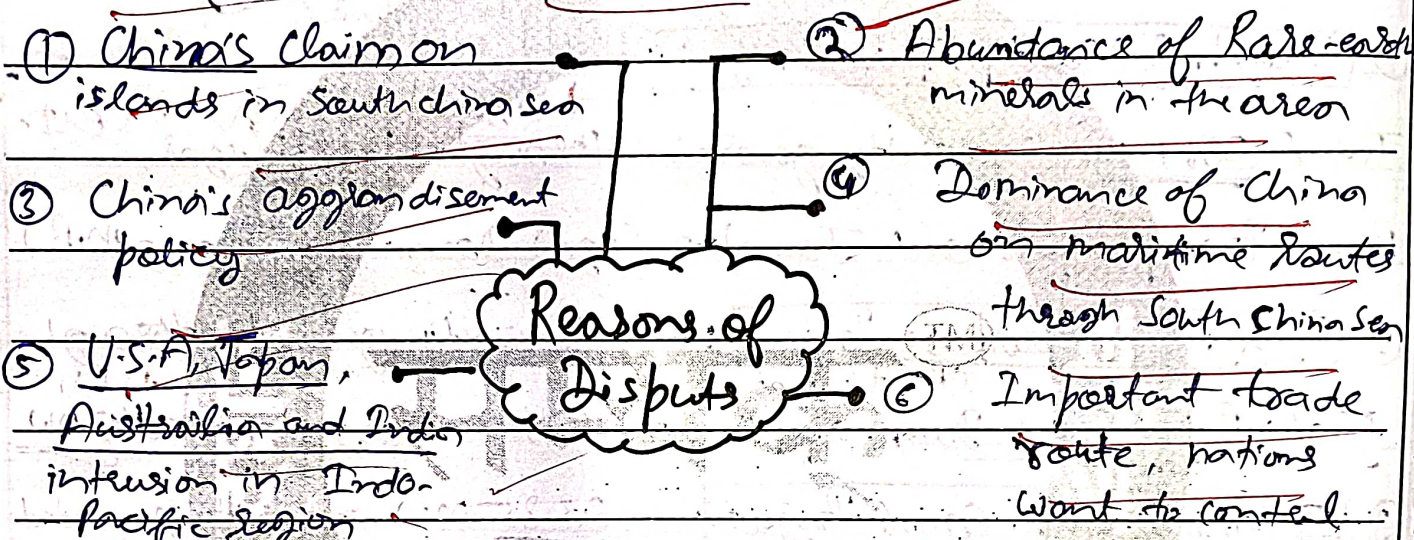 ① China's Claim on
islands in South china sea
② Abundance of Rare-earth
minerals in the area
③ China's aggrandisement
policy
④ Dominance of China
on maritime routes
through South China sea
Reasons of
Disputs
⑤ U.S.A, Japan,
Australia and India
intrusion in Indo-
Pacific region
⑥ Important trade
route, nations
want to control